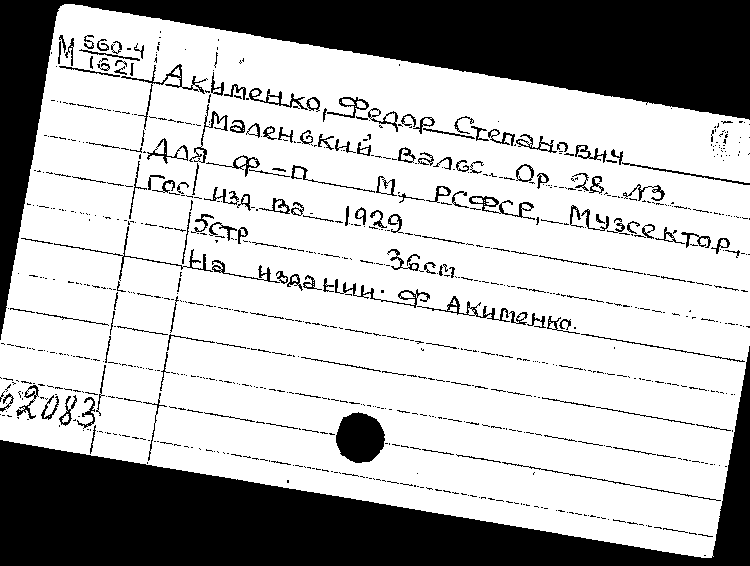 М 560-4
1621
Акименко, Федор Степанович
Маленький вальс. Ор 28 №3.
Для ф-п М, РСФСР, Музсектор,
Гос изд. ва. 1929
5стр 36см
На издании. Ф Акименко.
62083